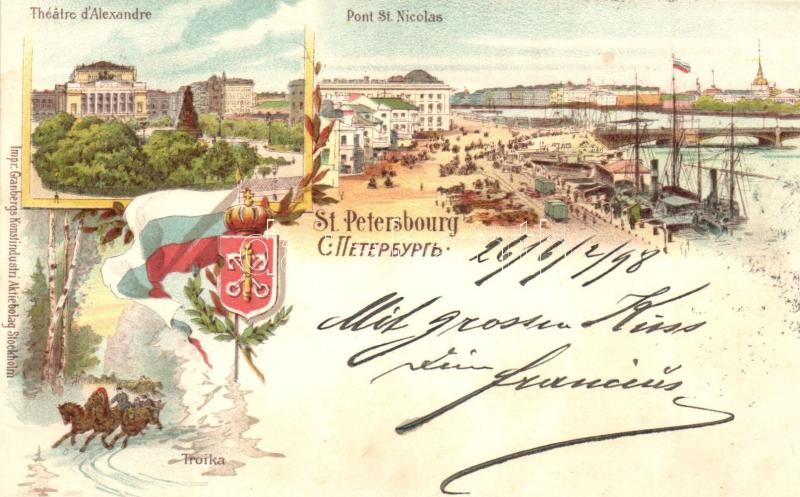 Théâtre d'Alexandre
Pont St. Nicolas
Impr. Granbergs Konstindustri Aktiebolag Stockholm
St. Petersbourg
С.ПЕТЕРБУРГЪ.
Mit grossem Kuss
Dein
Francius
Troika